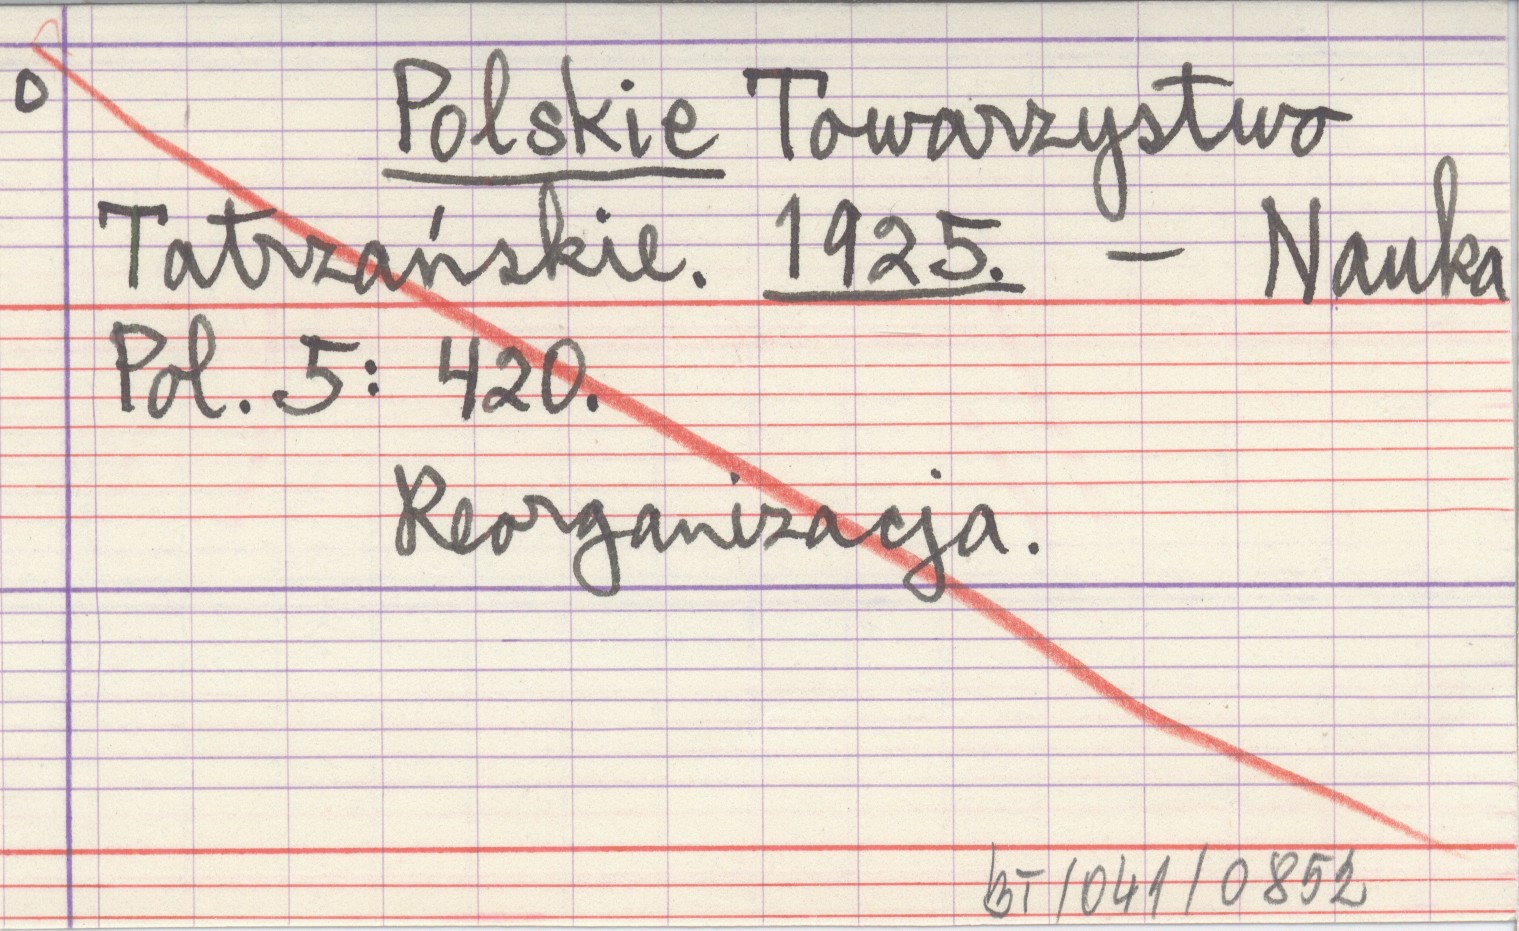 O
Polskie Towarzystwo
Tatrzańskie. 1925. – Nauka
Pol. 5: 420.
Reorganizacja.
BT/041/0852